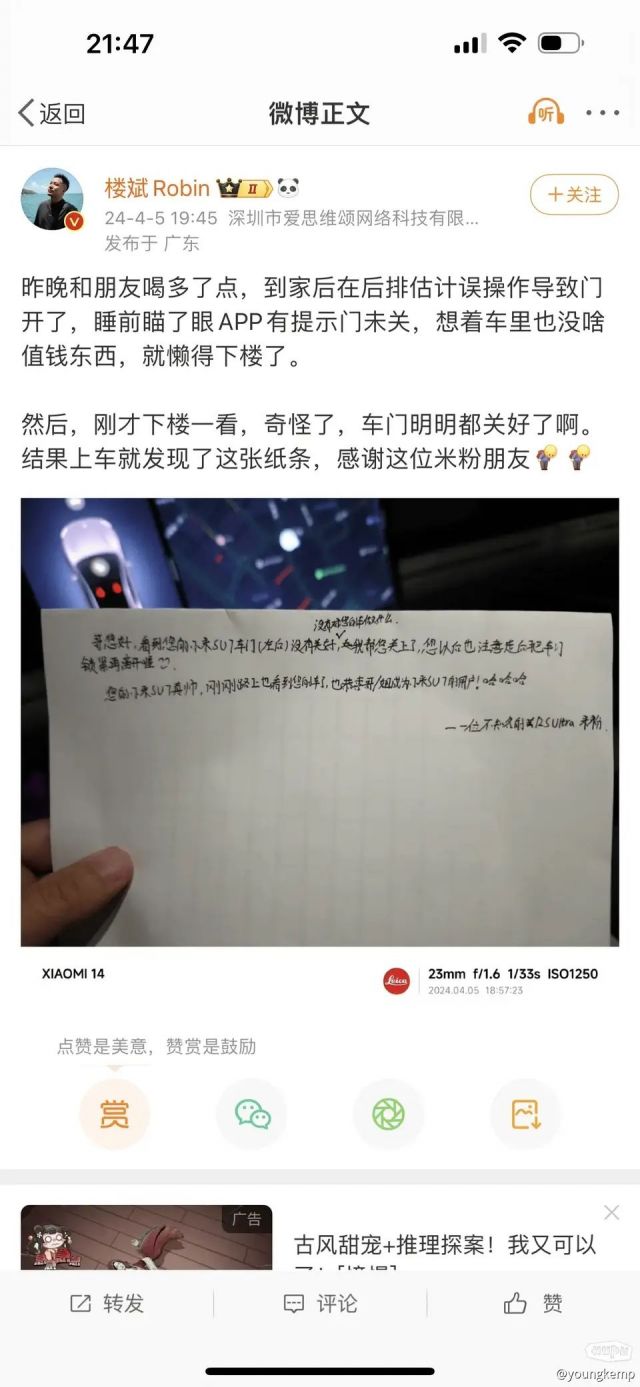 21:47
返回
微博正文
听
楼斌Robin II
+关注
24-4-5 19:45 深圳市爱思维颂网络科技有限...
发布于 广东
昨晚和朋友喝多了点，到家后在后排估计误操作导致门
开了，睡前瞄了眼APP有提示门未关，想着车里也没啥
值钱东西，就懒得下楼了。
然后，刚才下楼一看，奇怪了，车门明明都关好了啊。
结果上车就发现了这张纸条，感谢这位米粉朋友
看到您的小米SU7车门(左后)没有关好，我帮您关上了，您以后也注意走后把车门
锁果再离开哇
您的小米SU7真帅，刚刚路上也看到您的车了，也恭喜哥/姐成为小米SU7的用户！哈哈哈
一一位不知名的 Ultra 米粉
XIAOMI 14
Leica
23mm f/1.6 1/33s ISO1250
2024.04.05 18:57:23
点赞是美意，赞赏是鼓励
赏
广告
古风甜宠+推理探案！我又可以
转发
评论
赞
@youngkemp